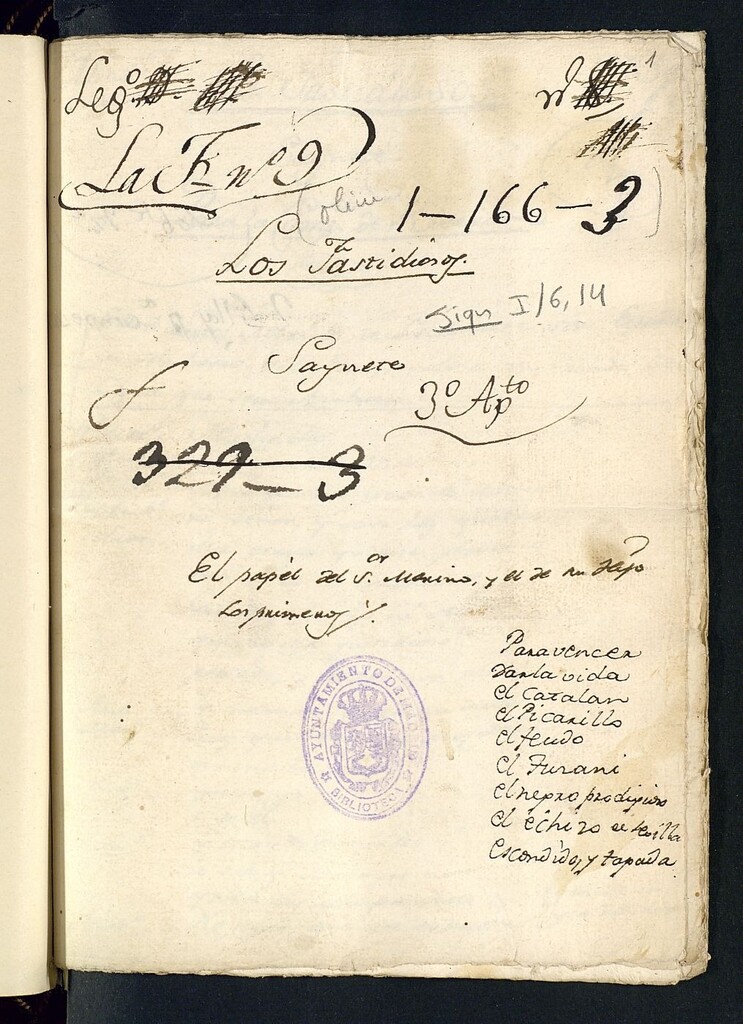 Leg.º
nº
1
La F. nº 9
(olim 1-166-3)
Los Fastidiosos.
Sign I/6, 14
Saynete
3º Apto
329-3
El papel del Sor. Merino, y el de su
Los primeros
Para vencer
Dar la vida
el Catalan
el Picarillo
el feudo
el Furani
el negro prodigioso
el échizo de Sevilla
Escondido, y tapada
AYUNTAMIENTO DE MADRID
BIBLIOTECA